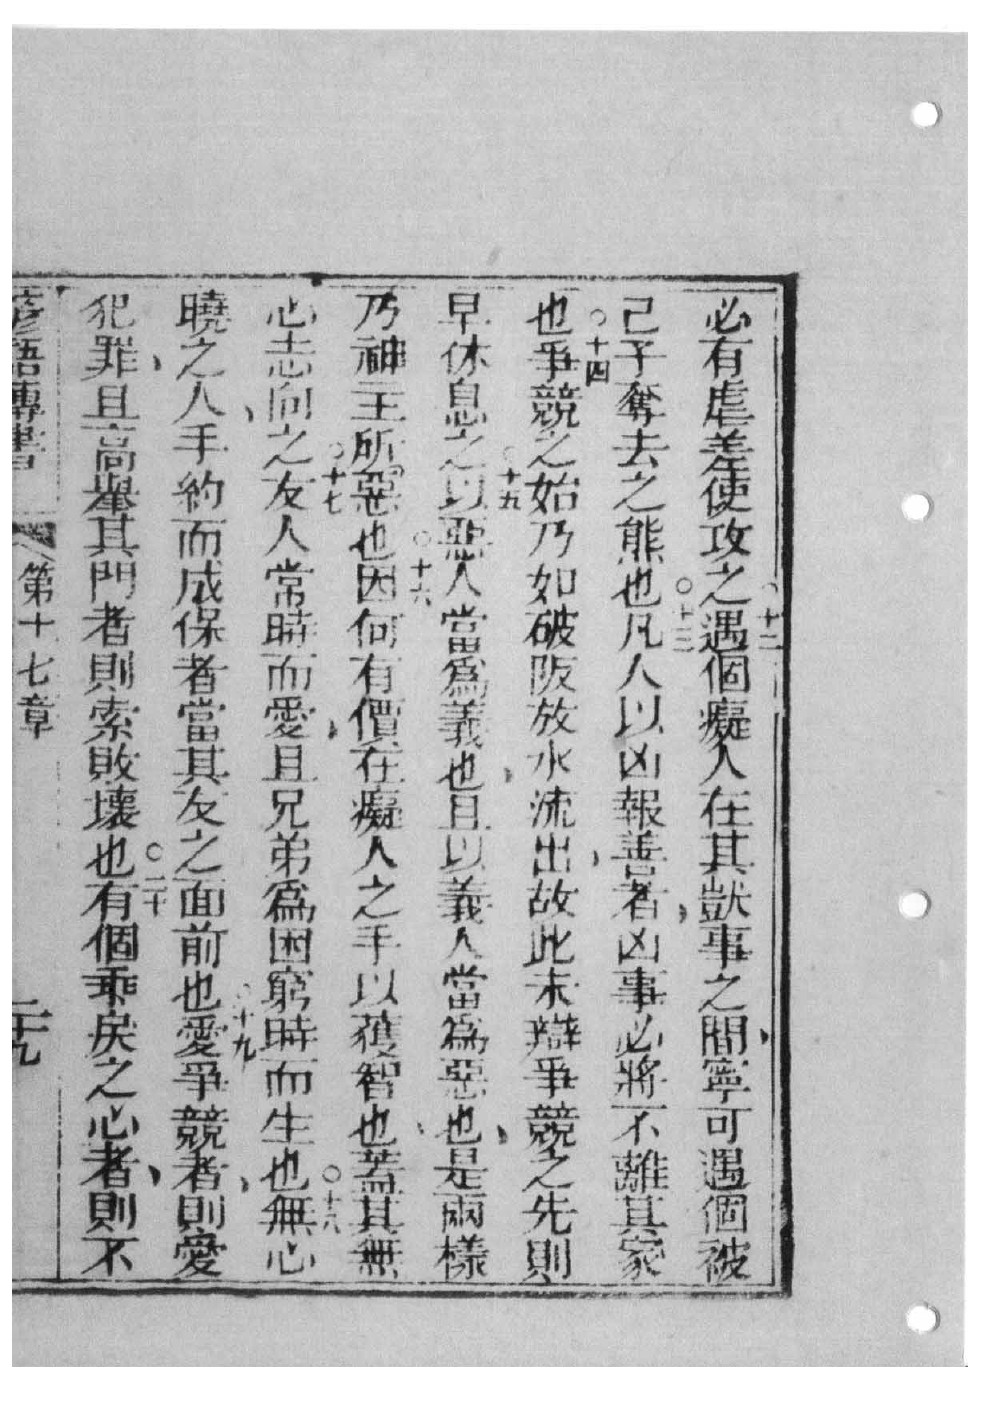 必有虐差使攻之○十二遇個癡人在其獃事之間寧可遇個被
己子奪去之熊也○十三凡人以凶報善者凶事必將不離其家
也○十四爭競之始乃如破阪放水流出故此未辯爭競之先則
早休息之○十五以惡人當爲義也且以義人當爲惡也是兩樣
乃神主所惡也○十六因何有價在癡人之手以獲智也蓋其無
心志向之○十七友人常時而愛且兄弟爲困窮時而生也○十八無心
曉之人手約而成保者當其友之面前也○十九愛爭競者則愛
犯罪且高舉其門者則索敗壞也○二十有個乖戾之心者則不
諺語傳書 第十七章 二十九